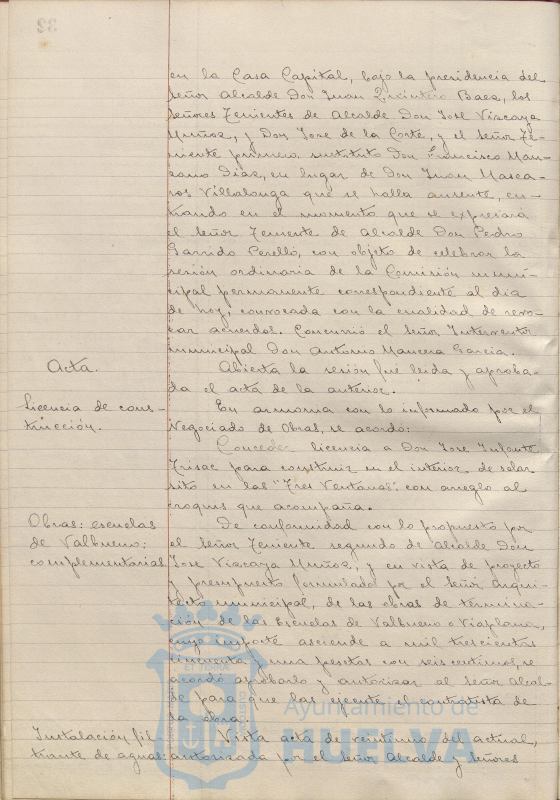 en la Casa Capital, bajo la presidencia del
señor Alcalde Don Juan Quintero Baez, los
señores Tenientes de Alcalde Don José Vizcaya
Muñoz, y Don José de la Corte, y el señor Te-
niente primero sustituto Don Francisco Man-
zano Díaz, en lugar de Don Juan Masca-
ros Villalonga que se halla ausente, en-
trando en el momento que se expresará
el señor Teniente de Alcalde Don Pedro
Garrido Perelló, con objeto de celebrar la
sesión ordinaria de la Comisión muni-
cipal permanente correspondiente al día
de hoy, convocada con la cualidad de revo-
car acuerdos. Concurrió el señor Interventor
municipal Don Antonio Mancera García.
Acta.
Abierta la sesión fué leida y aproba-
da el acta de la anterior.
Licencia de cons-
trucción.
En armonia con lo informado por el
Negociado de Obras, se acordó:
Conceder licencia a Don José Infante
para construir en el interior de solar
sito en las "Tres Ventanas" con arreglo al
croquis que acompaña.
Obras: escuelas
de Valbueno:
complementarias
De conformidad con lo propuesto por
el señor Teniente segundo de Alcalde Don
José Vizcaya Muñoz, y en vista de proyecto
y presupuesto formulado por el señor Arqui-
tecto municipal, de las obras de termina-
ción de las Escuelas de Valbueno o Viaplana,
cuyo importe asciende a mil trescientas
cincuenta y una pesetas con seis centimos, se
acordó aprobarlo y autorizar al señor Alcal-
de para que las ejecute el contratista de
la obra.
Instalación fil-
trante de aguas:
Vista acta de veintiuno del actual,
autorizada por el señor Alcalde y señores
Ayuntamiento de
HUELVA